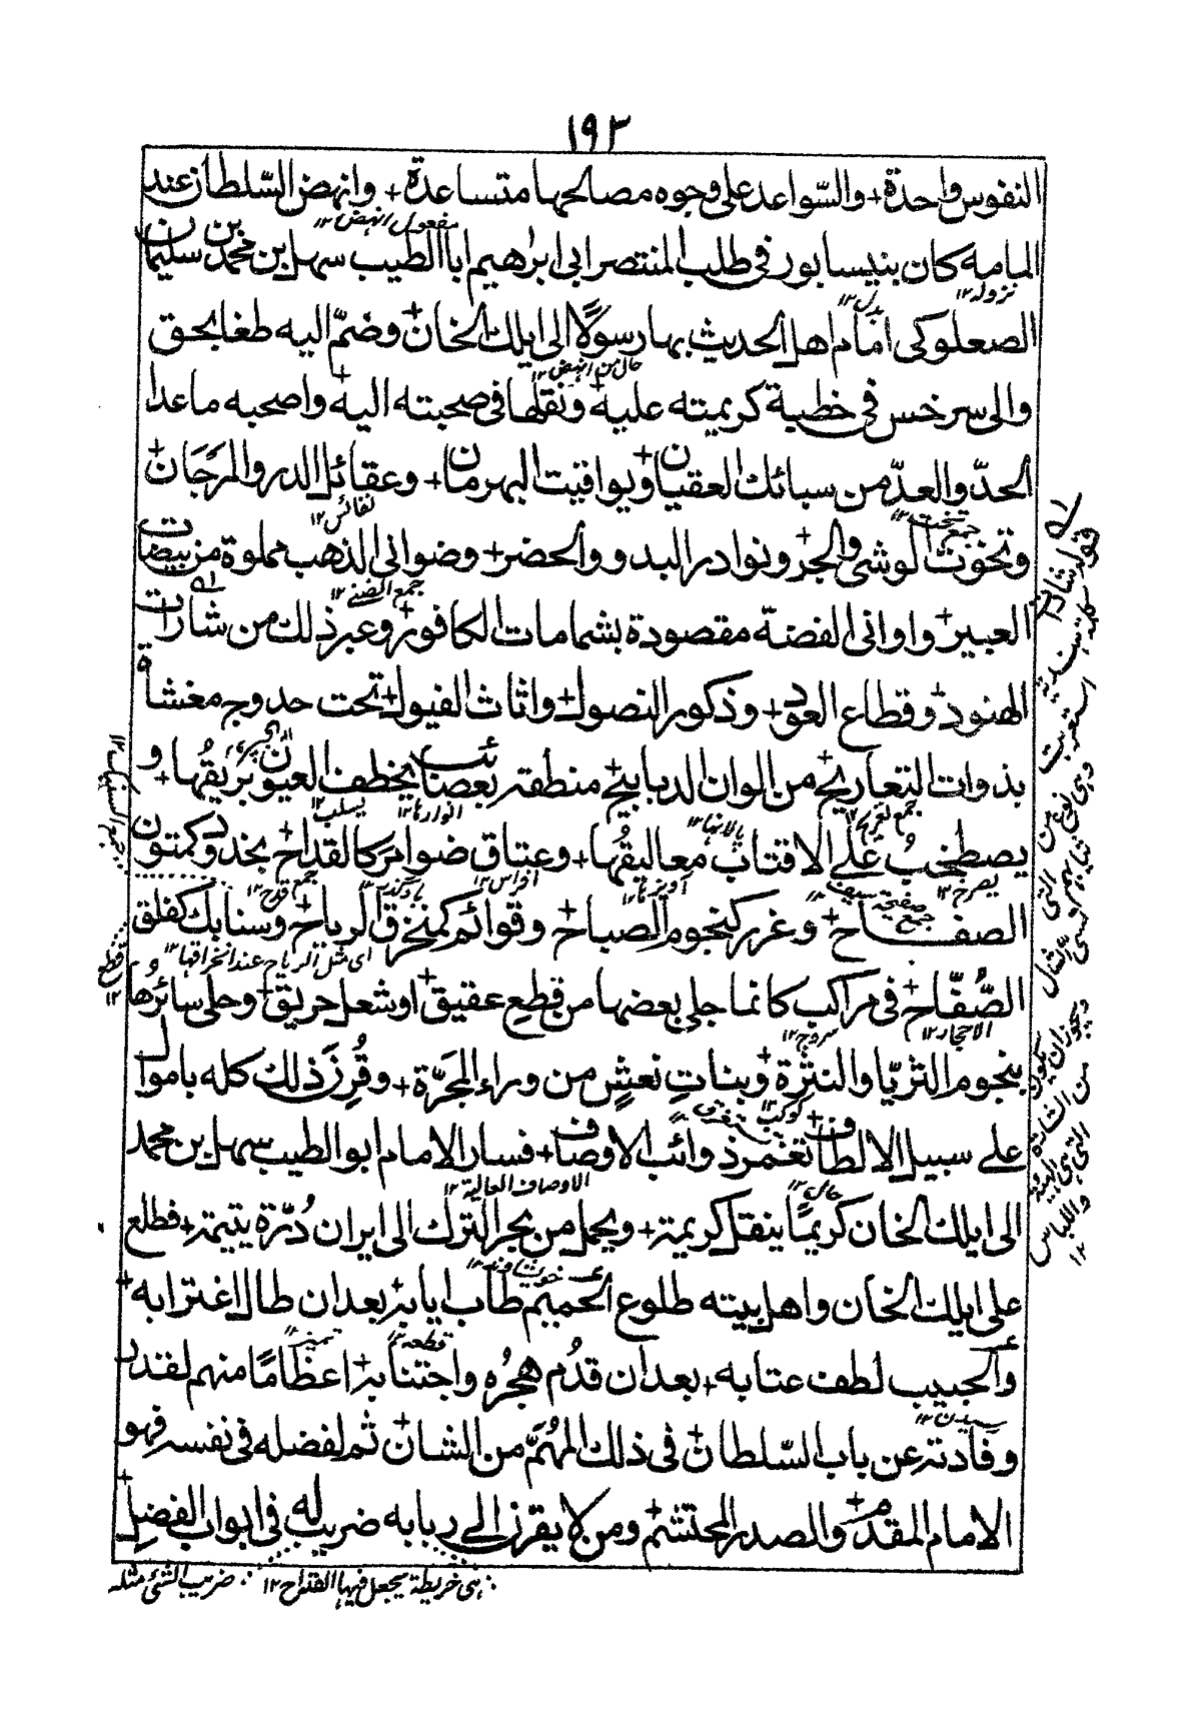 ١٩٣
النفوس واحدة+ والسّواعد على وجوه مصالحها متساعدة+ وانهض السّلطان عند
مفعول انهض ١٢
المامه كان بنيسابور فى طلب المنتصر ابى ابراهيم ابا الطيب سهل بن محمد بن سليمان
نزوله ١٢ بدل ١٢
الصعلوكى امام اهل الحديث بها رسولًا الى ايلك الخان+ وضمّ اليه طغانجق
حال من انهض ١٢
والى سرخس فى خطبة كريمته عليه+ ونقلها فى صحبته اليه+ واصحبه ما عدا
الحدّ والعدّ من سبائك العقيان+ ويواقيت البهرمان+ وعقائل الدر والمرجان+
جمع تخت ١٢ نفائس ١٢
وتخوت الوشى والحبر+ ونوادر البدو والحضر+ وضوانى الذهب مملوة من بيضات
جمع
العبير+ واوانى الفضة مقصودة بشمامات الكافور+ وغير ذلك من شارات
الهنود+ وقطاع العود+ وذكور النصول+ واناث الفيول+ تحت حدوج مغشاة
بذوات التعاريج+ من الوان الدبابيج+ منطقة بعصائب يخطف العيون بريقُها+ و
جمع تعريج ١٢ بالانها ١٢ انوارها ١٢ يسلب ١٢
يصطخب على الاقتاب معاليقُها+ وعتاق ضوامر كالقداح+ بخدود كمتون
يصرخ ١٢ جمع صفيحة سيف ١٢ آويزها ١٢ افراس ١٢ جمع قدح ١٢
الصفاح+ وغرر كنجوم الصباح+ وقوائم كمنخرق الرياح+ وسنابك كفلق
اى مثل الرياح عند انخراقها ١٢
الصُّفّاح+ فى مراكب كانما حلى بعضها من قطع عقيق+ او شعل حريق+ وحلى سائرها
الاحجار ١٢ سروج ١٢
بنجوم الثريّا والنثرة+ وبنات نعشٍ من وراء المجرّة+ وقُرِنَ ذلك كله باموال
كوكب ١٢
على سبيل الالطاف+ تغمر ذوائب الاوصاف+ فسار الامام ابو الطيب سهل بن محمد
الاوصاف العالية ١٢ حال ١٢
الى ايلك الخان كريمًا ينقل كريمة+ ويحمل من بحر الترك الى ايران دُرّة يتيمة+ فطلع
خويشاوند ١٢
على ايلك الخان واهل بيته طلوع الحميم طاب ايابه+ بعد ان طال اغترابه+
والحبيب لطف عتابه+ بعد ان قدُم هجرُه واجتنابه+ اعظامًا منهم لقدر
وفادته عن باب السّلطان+ فى ذلك المهمّ من الشان+ ثم لفضله فى نفسه فهو
الامام المقدم+ والصدر المحتشم+ ومن لا يقرن الى ربابه ضريب له فى ابواب الفضل+
هى خريطة يجعل فيها القداح ١٢ ضريب الشئ مثله